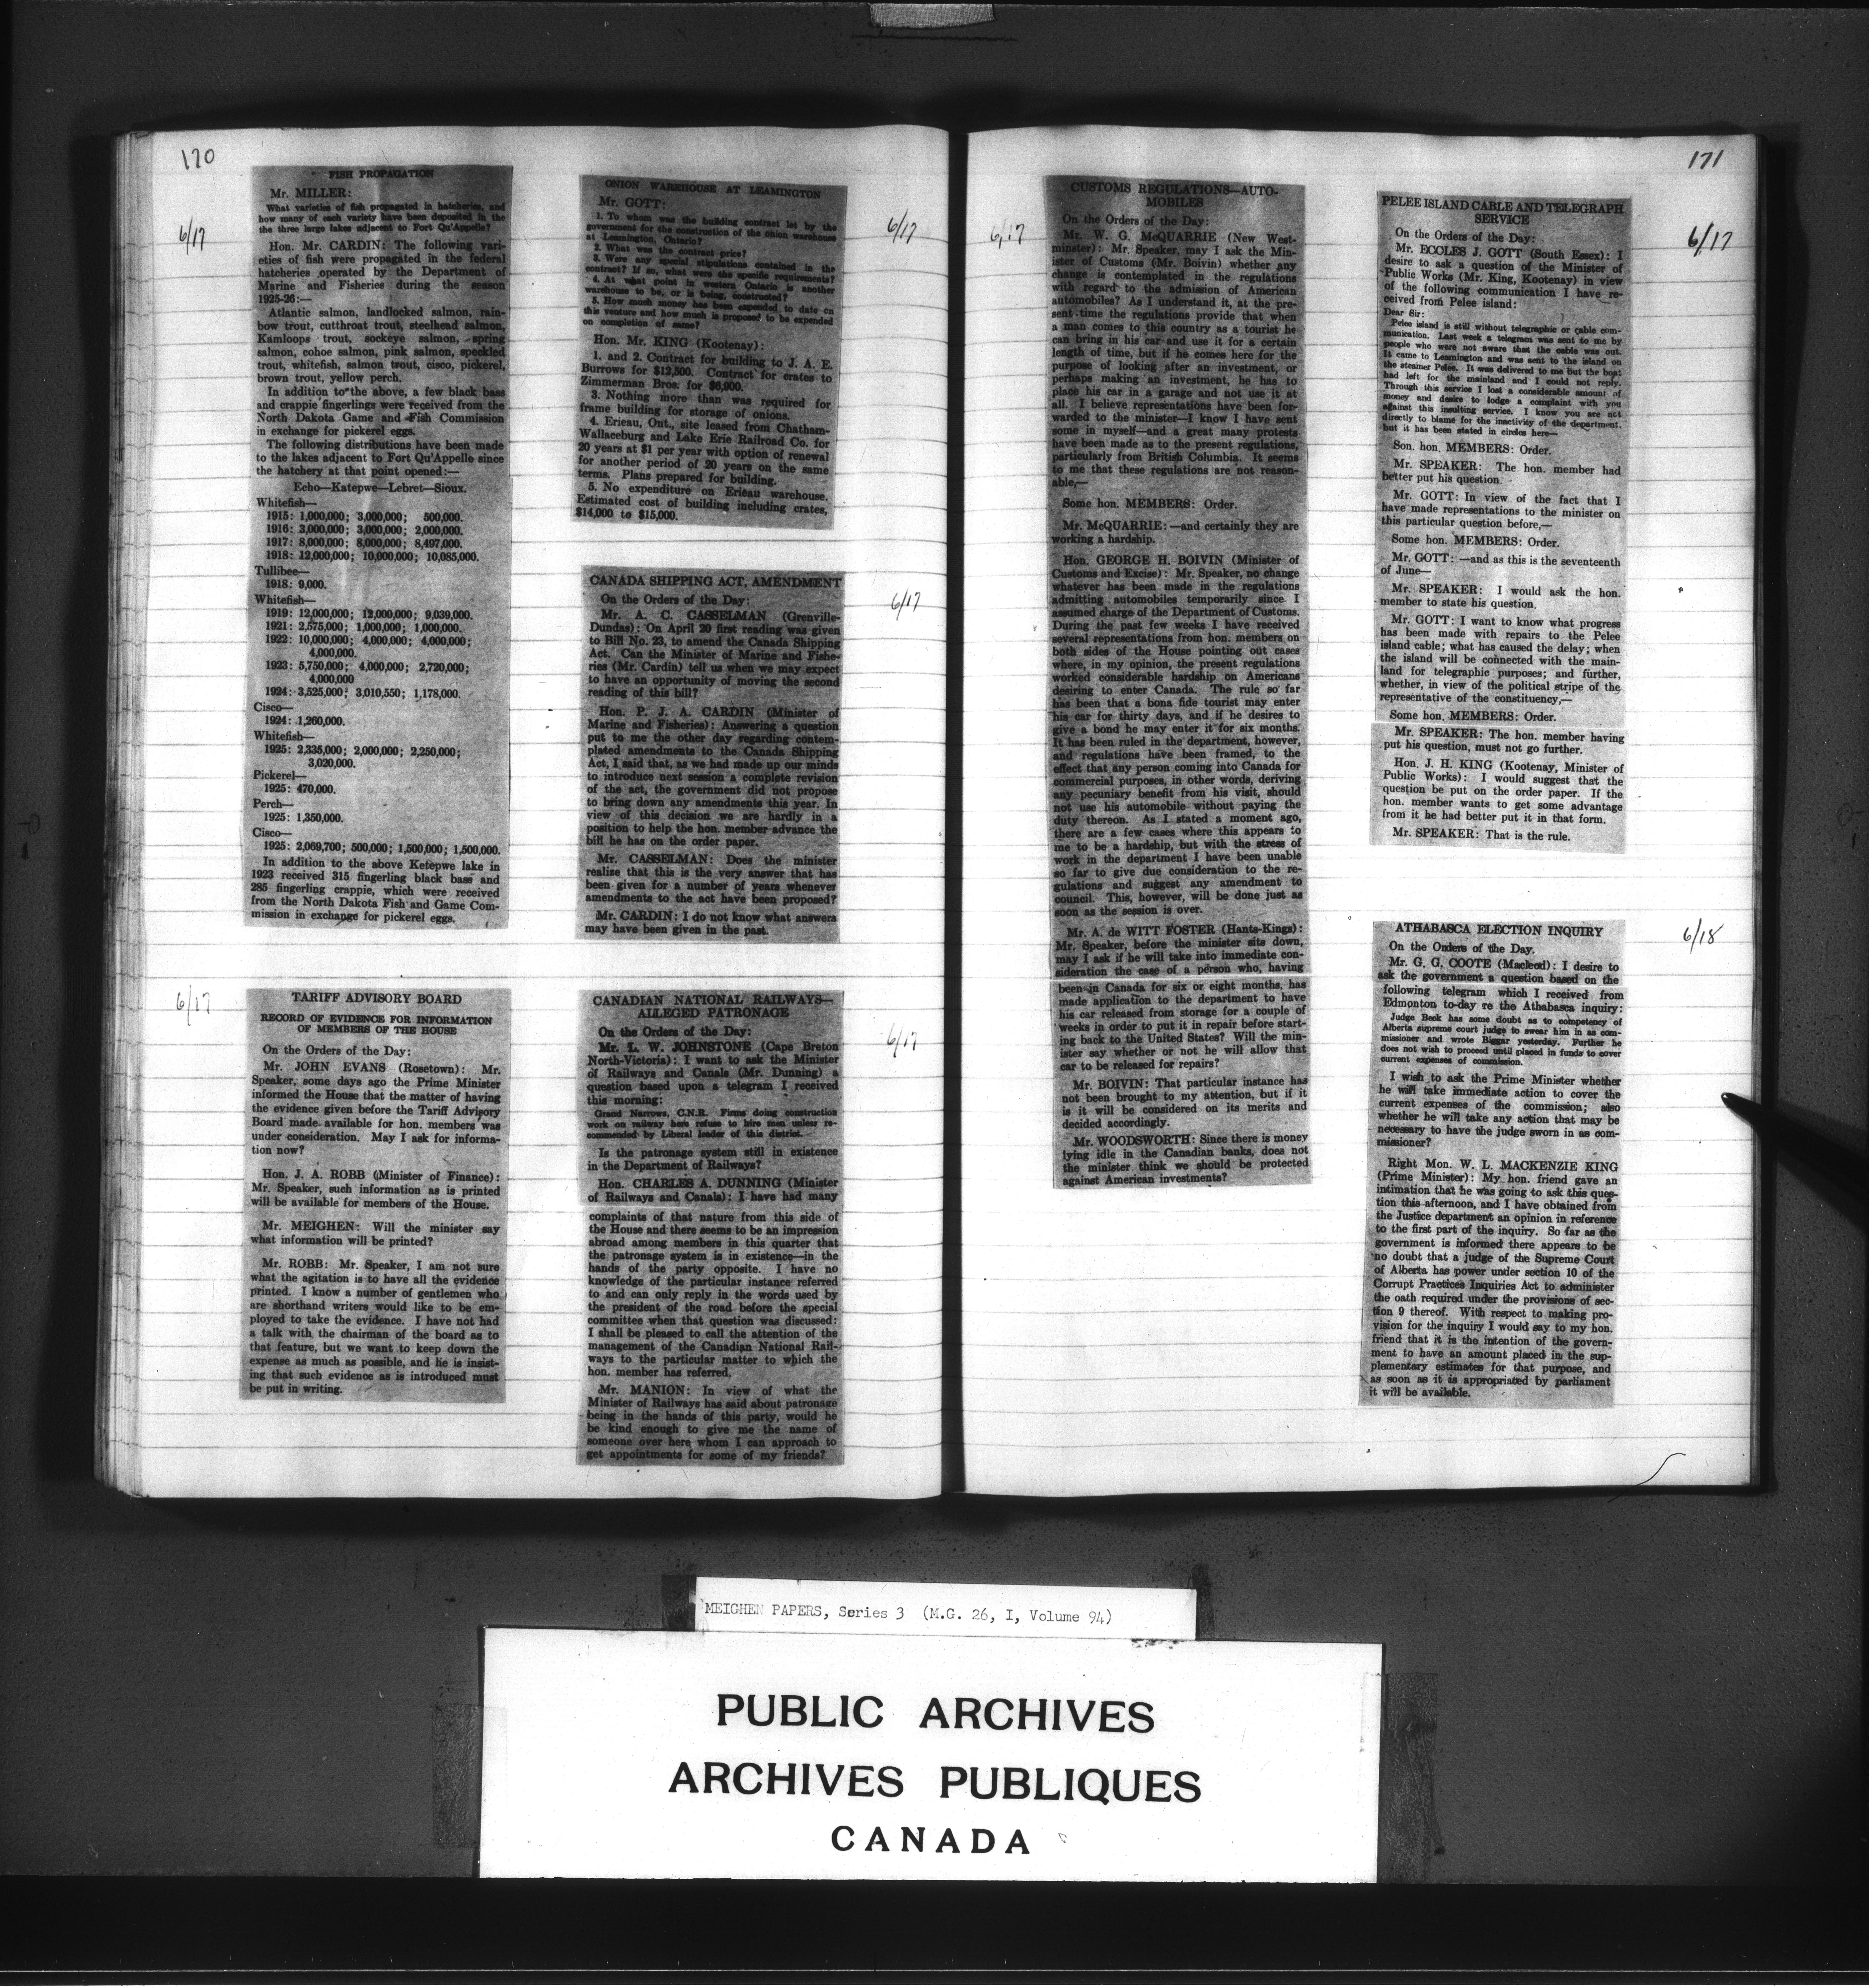 170
6/17
FISH PROPAGATION
Mr. MILLER:
What varieties of fish propagated in hatcheries, and
how many of each variety have been deposited in the
the three large lakes adjacent to Fort Qu'Appelle?
Hon. Mr. CARDIN: The following vari-
eties of fish were propagated in the federal
hatcheries operated by the Department of
Marine and Fisheries during the season
1925-26:—
Atlantic salmon, landlocked salmon, rain-
bow trout, cutthroat trout, steelhead salmon,
Kamloops trout, sockeye salmon, spring
salmon, cohoe salmon, pink salmon, speckled
trout, whitefish, salmon trout, cisco, pickerel,
brown trout, yellow perch.
In addition to the above, a few black bass
and crappie fingerlings were received from the
North Dakota Game and Fish Commission
in exchange for pickerel eggs.
The following distributions have been made
to the lakes adjacent to Fort Qu'Appelle since
the hatchery at that point opened:—
Echo—Katepwe—Lebret—Sioux.
Whitefish—
1915: 1,000,000; 3,000,000; 500,000.
1916: 3,000,000; 3,000,000; 2,000,000.
1917: 8,000,000; 8,000,000; 8,497,000.
1918: 12,000,000; 10,000,000; 10,085,000.
Tullibee—
1918: 9,000.
Whitefish—
1919: 12,000,000; 12,000,000; 9,039,000.
1921: 2,575,000; 1,000,000; 1,000,000.
1922: 10,000,000; 4,000,000; 4,000,000;
4,000,000.
1923: 5,750,000; 4,000,000; 2,720,000;
4,000,000
1924: 3,525,000; 3,010,550; 1,178,000.
Cisco—
1924: 1,260,000.
Whitefish—
1925: 2,335,000; 2,000,000; 2,250,000;
3,020,000.
Pickerel—
1925: 470,000.
Perch—
1925: 1,350,000.
Cisco—
1925: 2,069,700; 500,000; 1,500,000; 1,500,000.
In addition to the above Ketepwe lake in
1923 received 315 fingerling black bass and
285 fingerling crappie, which were received
from the North Dakota Fish and Game Com-
mission in exchange for pickerel eggs.
6/17
TARIFF ADVISORY BOARD
RECORD OF EVIDENCE FOR INFORMATION
OF MEMBERS OF THE HOUSE
On the Orders of the Day:
Mr. JOHN EVANS (Rosetown): Mr.
Speaker, some days ago the Prime Minister
informed the House that the matter of having
the evidence given before the Tariff Advisory
Board made available for hon. members was
under consideration. May I ask for informa-
tion now?
Hon. J. A. ROBB (Minister of Finance):
Mr. Speaker, such information as is printed
will be available for members of the House.
Mr. MEIGHEN: Will the minister say
what information will be printed?
Mr. ROBB: Mr. Speaker, I am not sure
what the agitation is to have all the evidence
printed. I know a number of gentlemen who
are shorthand writers would like to be em-
ployed to take the evidence. I have not had
a talk with the chairman of the board as to
that feature, but we want to keep down the
expense as much as possible, and he is insist-
ing that such evidence as is introduced must
be put in writing.
6/17
ONION WAREHOUSE AT LEAMINGTON
Mr. GOTT:
1. To whom was the building contract let by the
government for the construction of the onion warehouse
at Leamington, Ontario?
2. What was the contract price?
3. Were any special stipulations contained in the
contract? If so, what were the specific requirements?
4. At what point in western Ontario is another
warehouse to be, or is being, constructed?
5. How much money has been expended to date on
this venture and how much is proposed to be expended
on completion of same?
Hon. Mr. KING (Kootenay):
1. and 2. Contract for building to J. A. E.
Burrows for $12,500. Contract for crates to
Zimmerman Bros. for $6,900.
3. Nothing more than was required for
frame building for storage of onions.
4. Erieau, Ont., site leased from Chatham-
Wallaceburg and Lake Erie Railroad Co. for
20 years at $1 per year with option of renewal
for another period of 20 years on the same
terms. Plans prepared for building.
5. No expenditure on Erieau warehouse.
Estimated cost of building including crates,
$14,000 to $15,000.
6/17
CANADA SHIPPING ACT, AMENDMENT
On the Orders of the Day:
Mr. A. C. CASSELMAN (Grenville-
Dundas): On April 20 first reading was given
to Bill No. 23, to amend the Canada Shipping
Act. Can the Minister of Marine and Fishe-
ries (Mr. Cardin) tell us when we may expect
to have an opportunity of moving the second
reading of this bill?
Hon. P. J. A. CARDIN (Minister of
Marine and Fisheries): Answering a question
put to me the other day regarding contem-
plated amendments to the Canada Shipping
Act, I said that, as we had made up our minds
to introduce next session a complete revision
of the act, the government did not propose
to bring down any amendments this year. In
view of this decision we are hardly in a
position to help the hon. member advance the
bill he has on the order paper.
Mr. CASSELMAN: Does the minister
realize that this is the very answer that has
been given for a number of years whenever
amendments to the act have been proposed?
Mr. CARDIN: I do not know what answers
may have been given in the past.
6/17
CANADIAN NATIONAL RAILWAYS—
ALLEGED PATRONAGE
On the Orders of the Day:
Mr. L. W. JOHNSTONE (Cape Breton
North-Victoria): I want to ask the Minister
of Railways and Canals (Mr. Dunning) a
question based upon a telegram I received
this morning:
Grand Narrows, C.N.R. Firms doing construction
work on railway here refuse to hire men unless re-
commended by Liberal leader of this district.
Is the patronage system still in existence
in the Department of Railways?
Hon. CHARLES A. DUNNING (Minister
of Railways and Canals): I have had many
complaints of that nature from this side of
the House and there seems to be an impression
abroad among members in this quarter that
the patronage system is in existence—in the
hands of the party opposite. I have no
knowledge of the particular instance referred
to and can only reply in the words used by
the president of the road before the special
committee when that question was discussed:
I shall be pleased to call the attention of the
management of the Canadian National Rail-
ways to the particular matter to which the
hon. member has referred.
Mr. MANION: In view of what the
Minister of Railways has said about patronage
being in the hands of this party, would he
be kind enough to give me the name of
someone over here whom I can approach to
get appointments for some of my friends?
171
6/17
CUSTOMS REGULATIONS—AUTO-
MOBILES
On the Orders of the Day:
Mr. W. G. McQUARRIE (New West-
minster): Mr. Speaker, may I ask the Min-
ister of Customs (Mr. Boivin) whether any
change is contemplated in the regulations
with regard to the admission of American
automobiles? As I understand it, at the pre-
sent time the regulations provide that when
a man comes to this country as a tourist he
can bring in his car and use it for a certain
length of time, but if he comes here for the
purpose of looking after an investment, or
perhaps making an investment, he has to
place his car in a garage and not use it at
all. I believe representations have been for-
warded to the minister—I know I have sent
some in myself—and a great many protests
have been made as to the present regulations,
particularly from British Columbia. It seems
to me that these regulations are not reason-
able,—
Some hon. MEMBERS: Order.
Mr. McQUARRIE: —and certainly they are
working a hardship.
Hon. GEORGE H. BOIVIN (Minister of
Customs and Excise): Mr. Speaker, no change
whatever has been made in the regulations
admitting automobiles temporarily since I
assumed charge of the Department of Customs.
During the past few weeks I have received
several representations from hon. members on
both sides of the House pointing out cases
where, in my opinion, the present regulations
worked considerable hardship on Americans
desiring to enter Canada. The rule so far
has been that a bona fide tourist may enter
his car for thirty days, and if he desires to
give a bond he may enter it for six months.
It has been ruled in the department, however,
and regulations have been framed, to the
effect that any person coming into Canada for
commercial purposes, in other words, deriving
any pecuniary benefit from his visit, should
not use his automobile without paying the
duty thereon. As I stated a moment ago,
there are a few cases where this appears to
me to be a hardship, but with the stress of
work in the department I have been unable
so far to give due consideration to the re-
gulations and suggest any amendment to
council. This, however, will be done just as
soon as the session is over.
Mr. A. de WITT FOSTER (Hants-Kings):
Mr. Speaker, before the minister sits down,
may I ask if he will take into immediate con-
sideration the case of a person who, having
been in Canada for six or eight months, has
made application to the department to have
his car released from storage for a couple of
weeks in order to put it in repair before start-
ing back to the United States? Will the min-
ister say whether or not he will allow that
car to be released for repairs?
Mr. BOIVIN: That particular instance has
not been brought to my attention, but if it
is it will be considered on its merits and
decided accordingly.
Mr. WOODSWORTH: Since there is money
lying idle in the Canadian banks, does not
the minister think we should be protected
against American investments?
6/17
PELEE ISLAND CABLE AND TELEGRAPH
SERVICE
On the Orders of the Day:
Mr. ECCLES J. GOTT (South Essex): I
desire to ask a question of the Minister of
Public Works (Mr. King, Kootenay) in view
of the following communication I have re-
ceived from Pelee island:
Dear Sir:
Pelee island is still without telegraphic or cable com-
munication. Last week a telegram was sent to me by
people who were not aware that the cable was out.
It came to Leamington and was sent to the island on
the steamer Pelee. It was delivered to me but the boat
had left for the mainland and I could not reply.
Through this service I lost a considerable amount of
money and desire to lodge a complaint with you
against this insulting service. I know you are not
directly to blame for the inactivity of the department,
but it has been stated in circles here—
Son. hon. MEMBERS: Order.
Mr. SPEAKER: The hon. member had
better put his question.
Mr. GOTT: In view of the fact that I
have made representations to the minister on
this particular question before,—
Some hon. MEMBERS: Order.
Mr. GOTT: —and as this is the seventeenth
of June—
Mr. SPEAKER: I would ask the hon.
member to state his question.
Mr. GOTT: I want to know what progress
has been made with repairs to the Pelee
island cable; what has caused the delay; when
the island will be connected with the main-
land for telegraphic purposes; and further,
whether, in view of the political stripe of the
representative of the constituency,—
Some hon. MEMBERS: Order.
Mr. SPEAKER: The hon. member having
put his question, must not go further.
Hon. J. H. KING (Kootenay, Minister of
Public Works): I would suggest that the
question be put on the order paper. If the
hon. member wants to get some advantage
from it he had better put it in that form.
Mr. SPEAKER: That is the rule.
6/18
ATHABASCA ELECTION INQUIRY
On the Orders of the Day.
Mr. G. G. COOTE (Macleod): I desire to
ask the government a question based on the
following telegram which I received from
Edmonton to-day re the Athabasca inquiry:
Judge Beck has some doubt as to competency of
Alberta supreme court judge to swear him in as com-
missioner and wrote Biggar yesterday. Further he
does not wish to proceed until placed in funds to cover
current expenses of commission.
I wish to ask the Prime Minister whether
he will take immediate action to cover the
current expenses of the commission; also
whether he will take any action that may be
necessary to have the judge sworn in as com-
missioner?
Right Mon. W. L. MACKENZIE KING
(Prime Minister): My hon. friend gave an
intimation that he was going to ask this ques-
tion this afternoon, and I have obtained from
the Justice department an opinion in reference
to the first part of the inquiry. So far as the
government is informed there appears to be
no doubt that a judge of the Supreme Court
of Alberta has power under section 10 of the
Corrupt Practices Inquiries Act to administer
the oath required under the provisions of sec-
tion 9 thereof. With respect to making pro-
vision for the inquiry I would say to my hon.
friend that it is the intention of the govern-
ment to have an amount placed in the sup-
plementary estimates for that purpose, and
as soon as it is appropriated by parliament
it will be available.
MEIGHEN PAPERS, Series 3 (M.G. 26, I, Volume 94)
PUBLIC ARCHIVES
ARCHIVES PUBLIQUES
CANADA